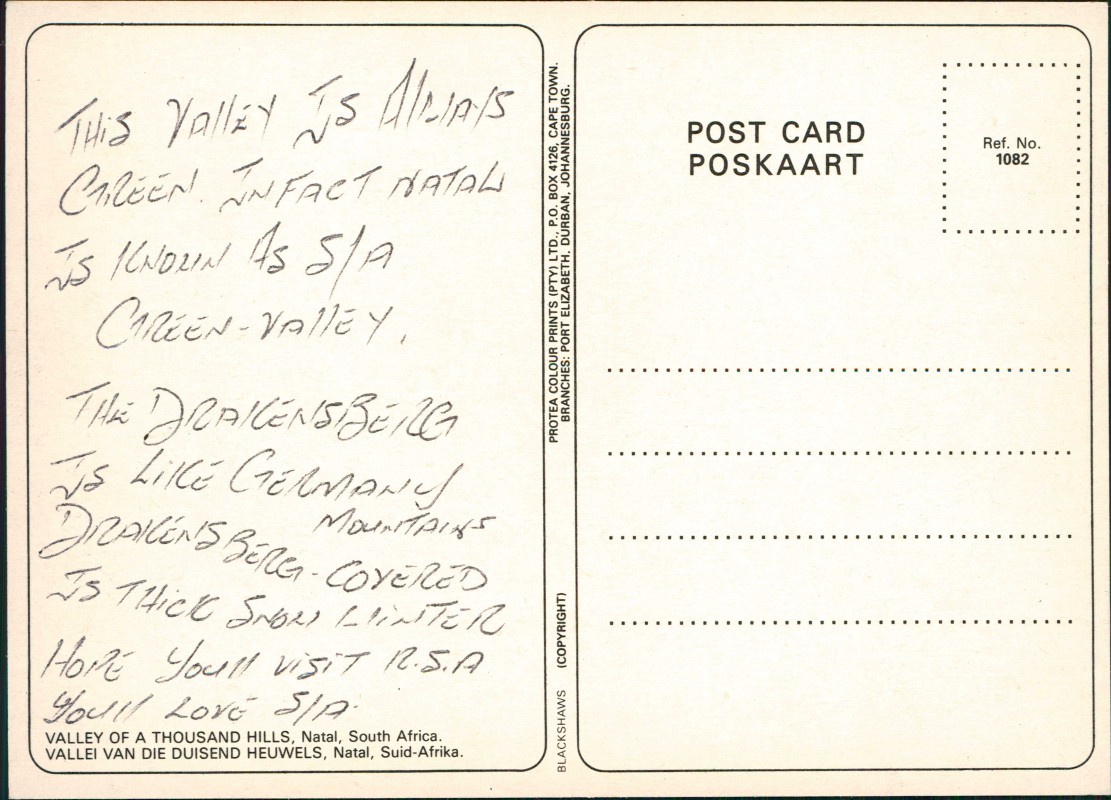 THiS VAllEY IS AlWAYS
GREEN. IN FACT NATAL
IS KNOWN AS S/A
GREEN-VAllEY.
THE DRAKENSBERG
IS LIKE GERMANY
MOUNTAINS
DRAKENSBERG-COVERED
IS THiCK SNOW WiNTER
HOPE YOUll ViSiT R.S.A
YOUll LOVE S/A.
VALLEY OF A THOUSAND HILLS, Natal, South Africa.
VALLEI VAN DIE DUISEND HEUWELS, Natal, Suid-Afrika.
PROTEA COLOUR PRINTS (PTY) LTD., P.O. BOX 4126, CAPE TOWN.
BRANCHES: PORT ELIZABETH, DURBAN, JOHANNESBURG.
BLACKSHAWS (COPYRIGHT)
POST CARD
POSKAART
Ref. No.
1082